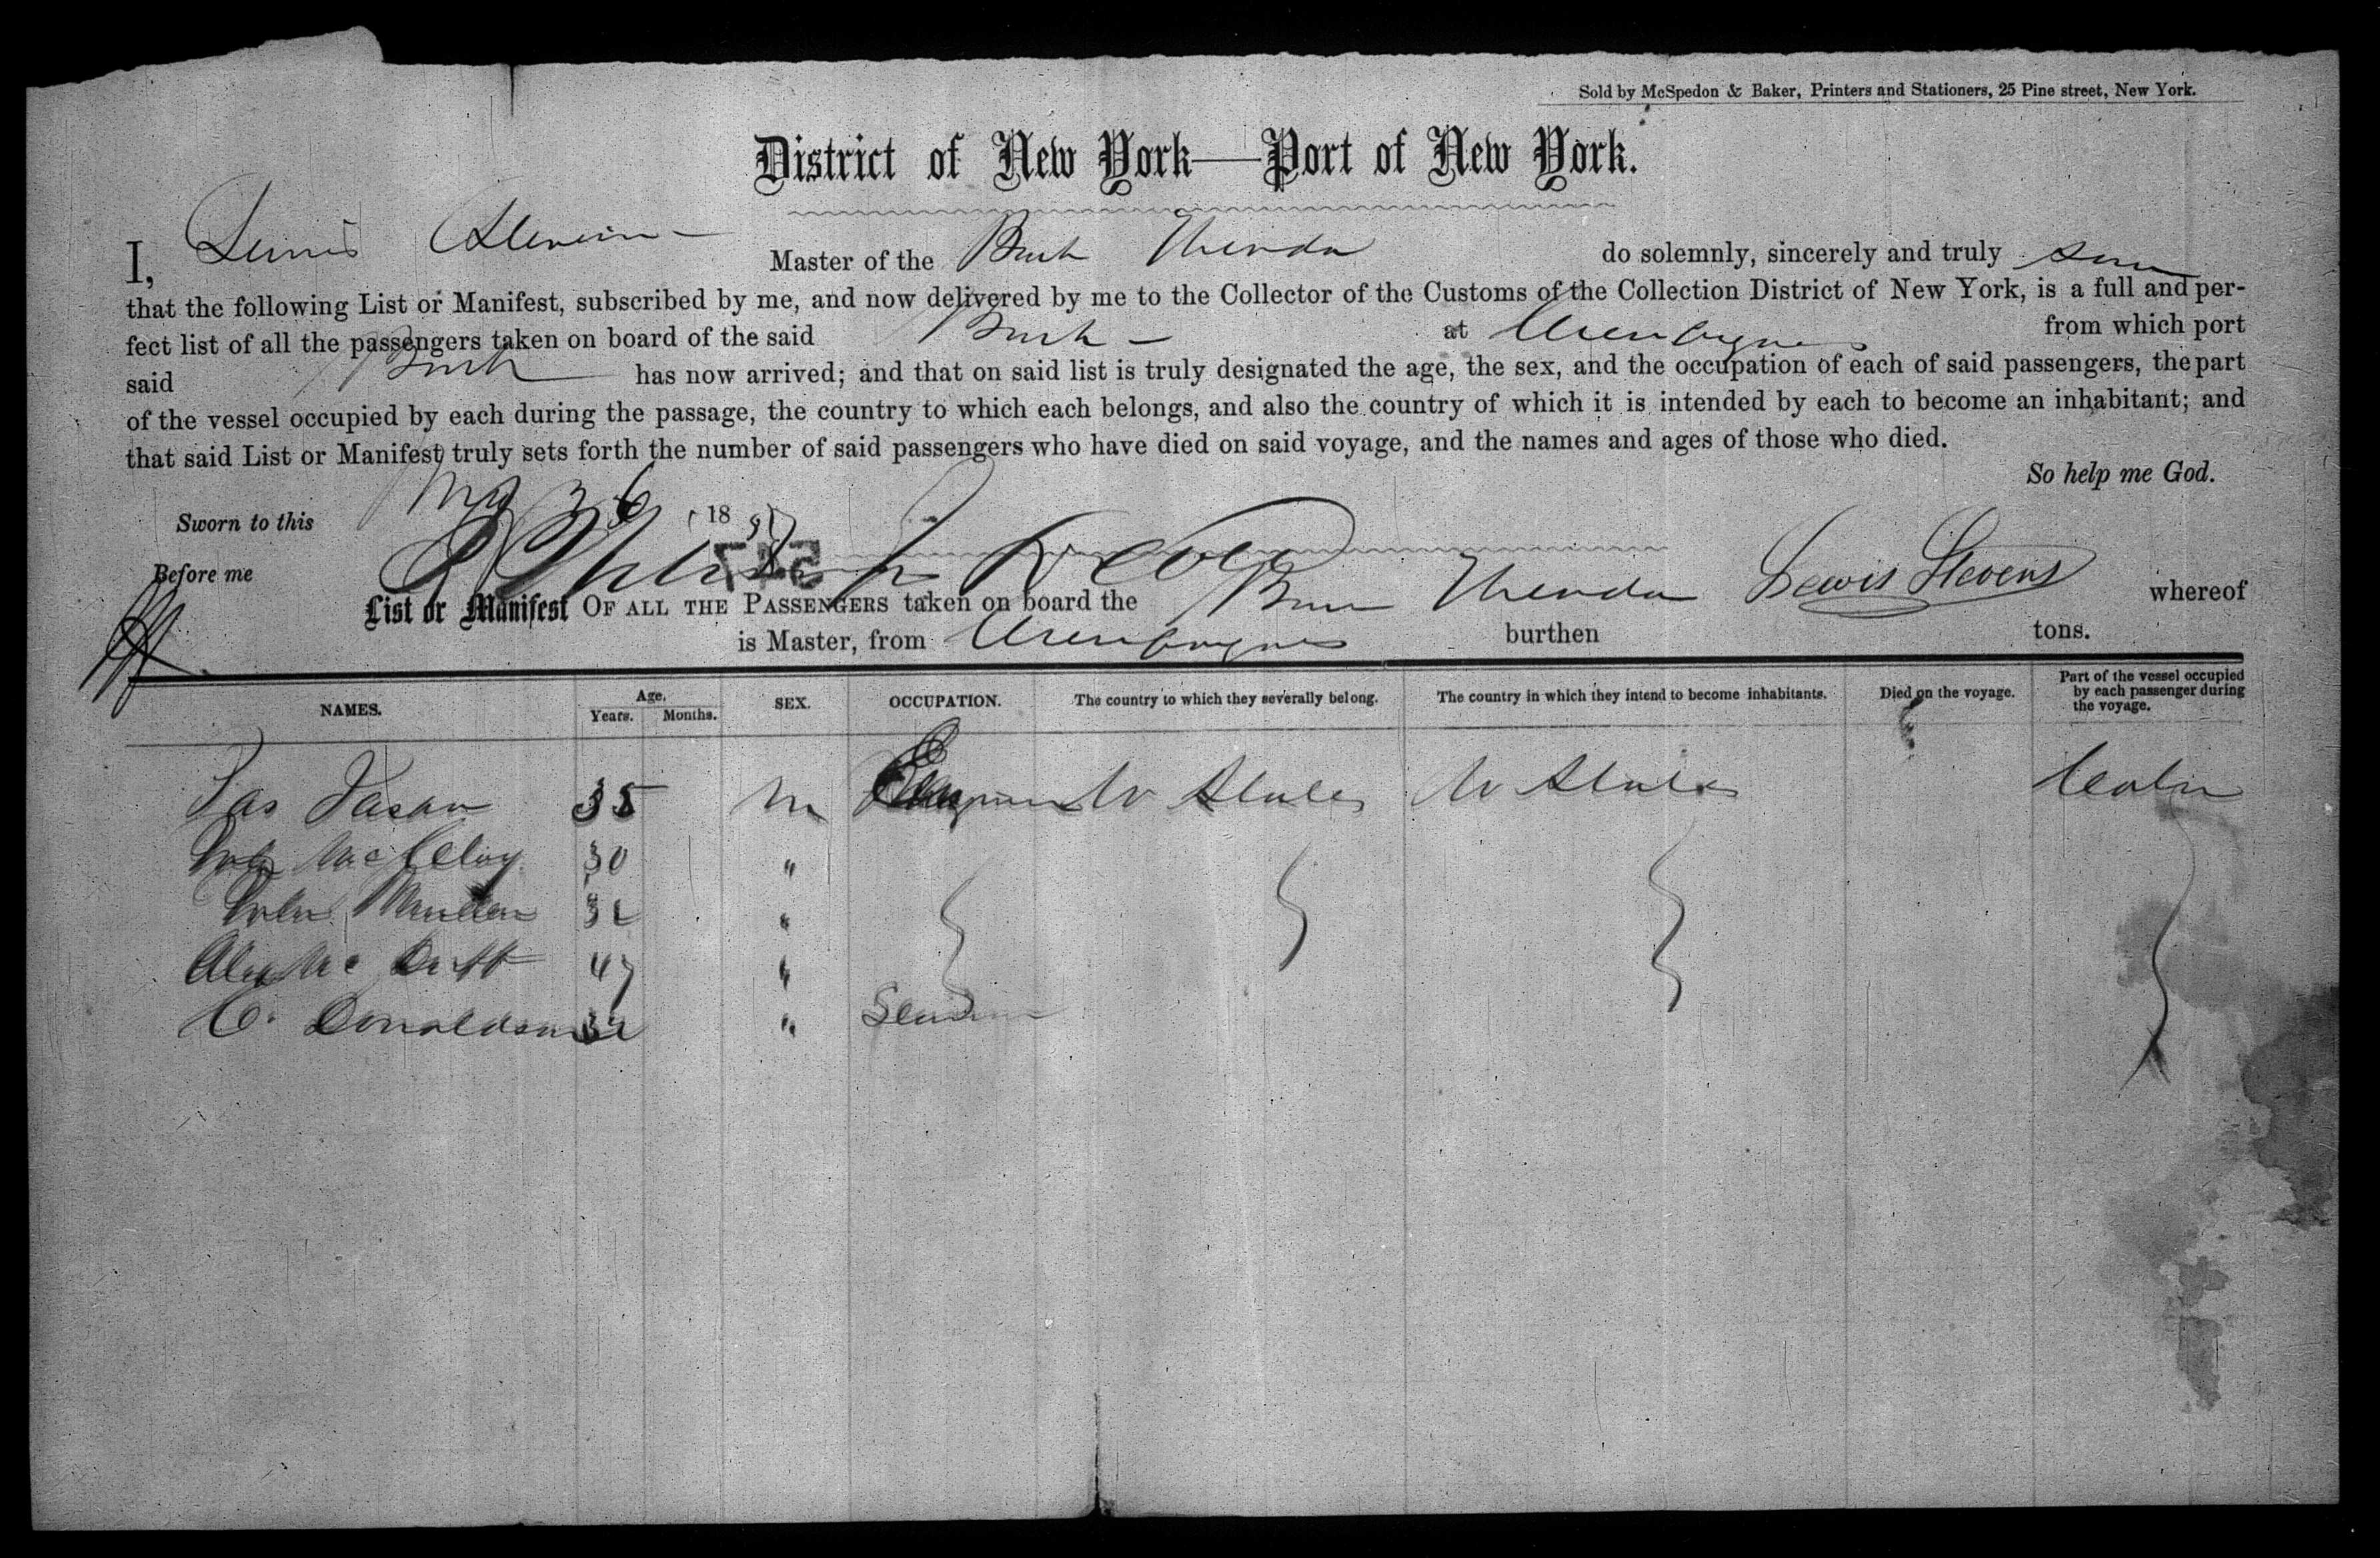 Sold by McSpedon & Baker, Printers and Stationers, 25 Pine street, New York.
District of New York—Port of New York.
I, Lewis Stevens Master of the Bark Thenda do solemnly, sincerely and truly swear
that the following List or Manifest, subscribed by me, and now delivered by me to the Collector of the Customs of the Collection District of New York, is a full and per-
fect list of all the passengers taken on board of the said Bark at from which port
said Bark has now arrived; and that on said list is truly designated the age, the sex, and the occupation of each of said passengers, the part
of the vessel occupied by each during the passage, the country to which each belongs, and also the country of which it is intended by each to become an inhabitant; and
that said List or Manifest truly sets forth the number of said passengers who have died on said voyage, and the names and ages of those who died.
So help me God.
Sworn to this 18
Before me
Lewis Stevens
List or Manifest OF ALL THE PASSENGERS taken on board the Thenda whereof
is Master, from burthen tons.
NAMES. Age. Years. Months. SEX. OCCUPATION. The country to which they severally belong. The country in which they intend to become inhabitants. Died on the voyage. Part of the vessel occupied by each passenger during the voyage.
Jas Jason 35 m U States U States Cabin
McElroy 30 "
John 32 "
Alex Mc 47 "
C. Donaldson 32 " Seaman